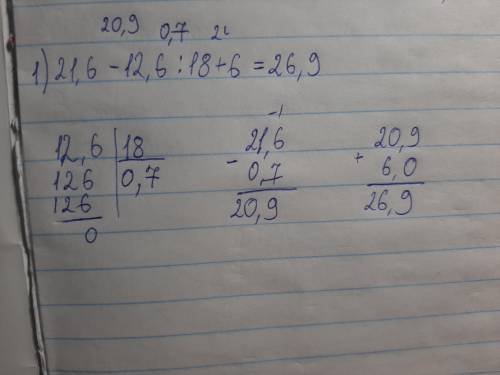 20,9 0,7
1) 21,6 - 12,6 : 18 + 6 = 26,9
12,6 | 18
126 | 0,7
126
0
-1
- 21,6
0,7
20,9
+ 20,9
6,0
26,9